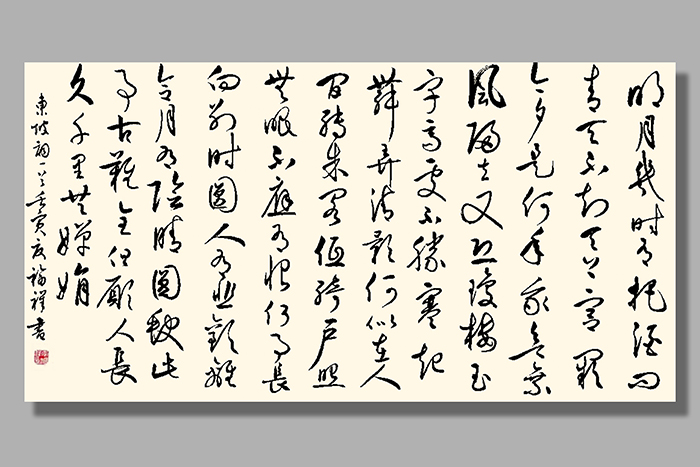 明月幾时有把酒问
青天不知天上宫闕
今夕是何年我欲乘
風歸去又恐瓊樓玉
宇高处不勝寒起
舞弄清影何似在人
间转朱阁低绮户照
無眠不應有恨何事長
向别时圓人有悲歡離
合月有陰晴圓缺此
事古難全但願人長
久千里共嬋娟
東坡詞一首 寅 书